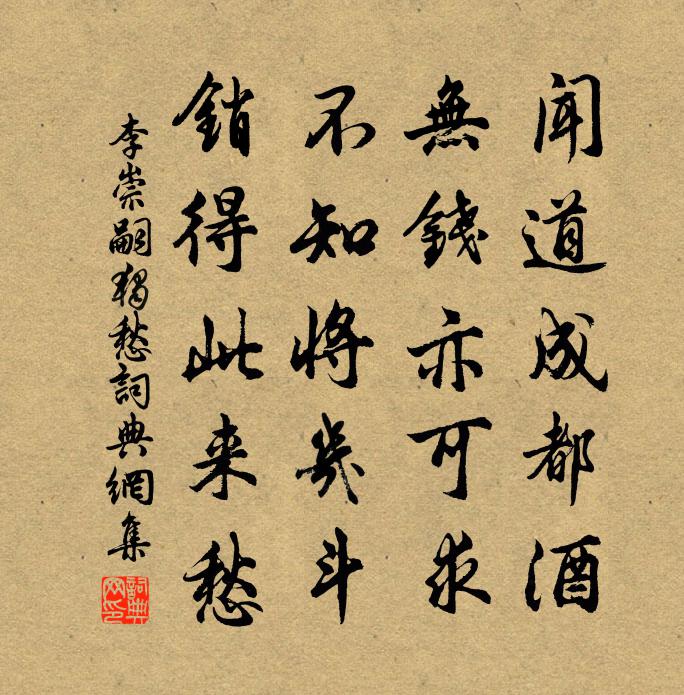 聞道成都酒
無錢亦可求
不知將幾斗
銷得此来愁
李崇嗣獨愁詞典網集
詞典網印